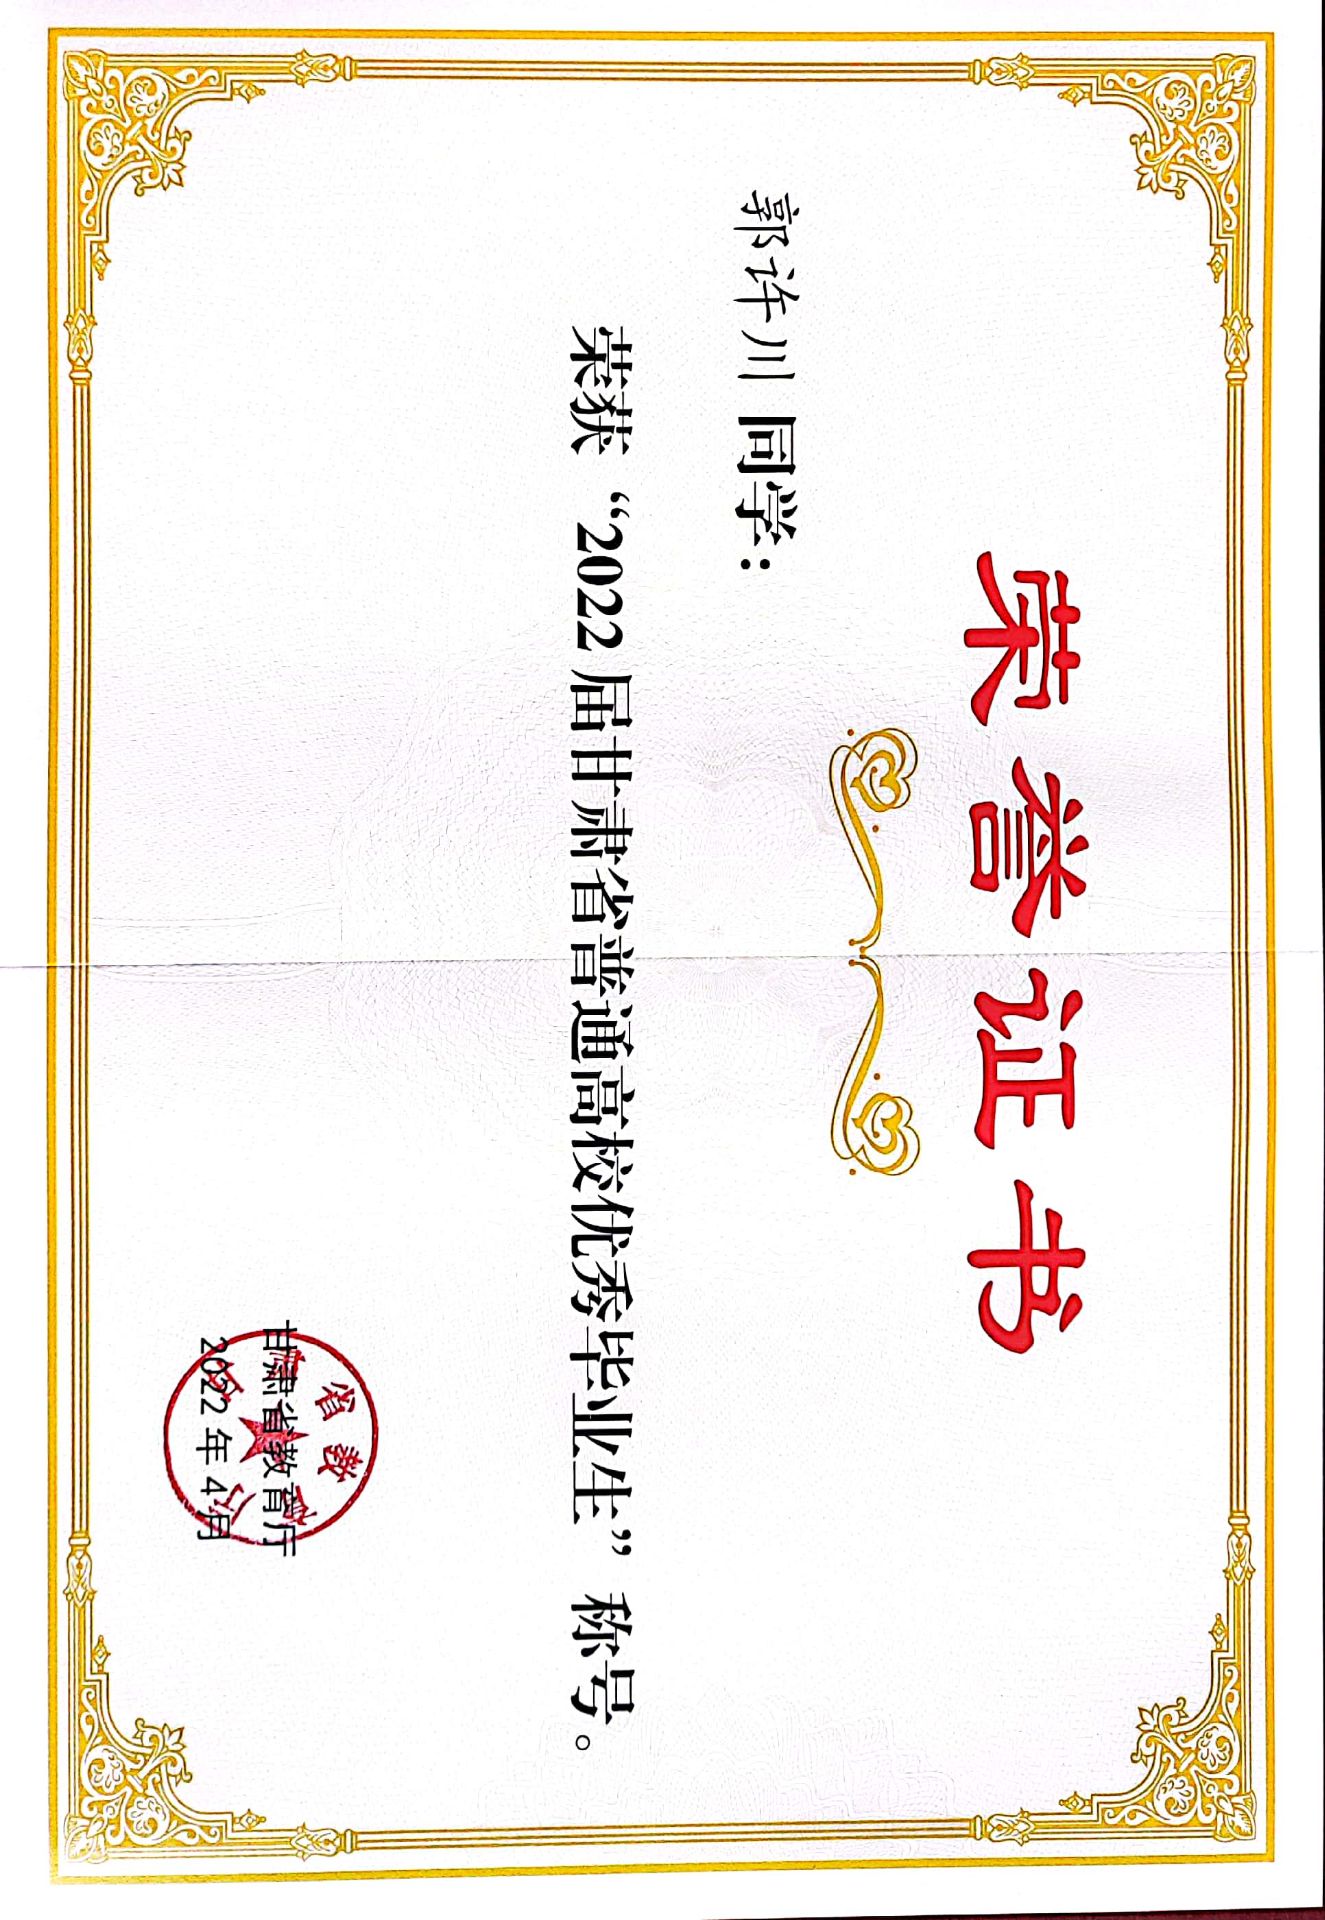 荣誉证书
郭许川 同学：
荣获“2022届甘肃省普通高校优秀毕业生”称号。
甘肃省教育厅
2022年4月
甘肃省教育厅